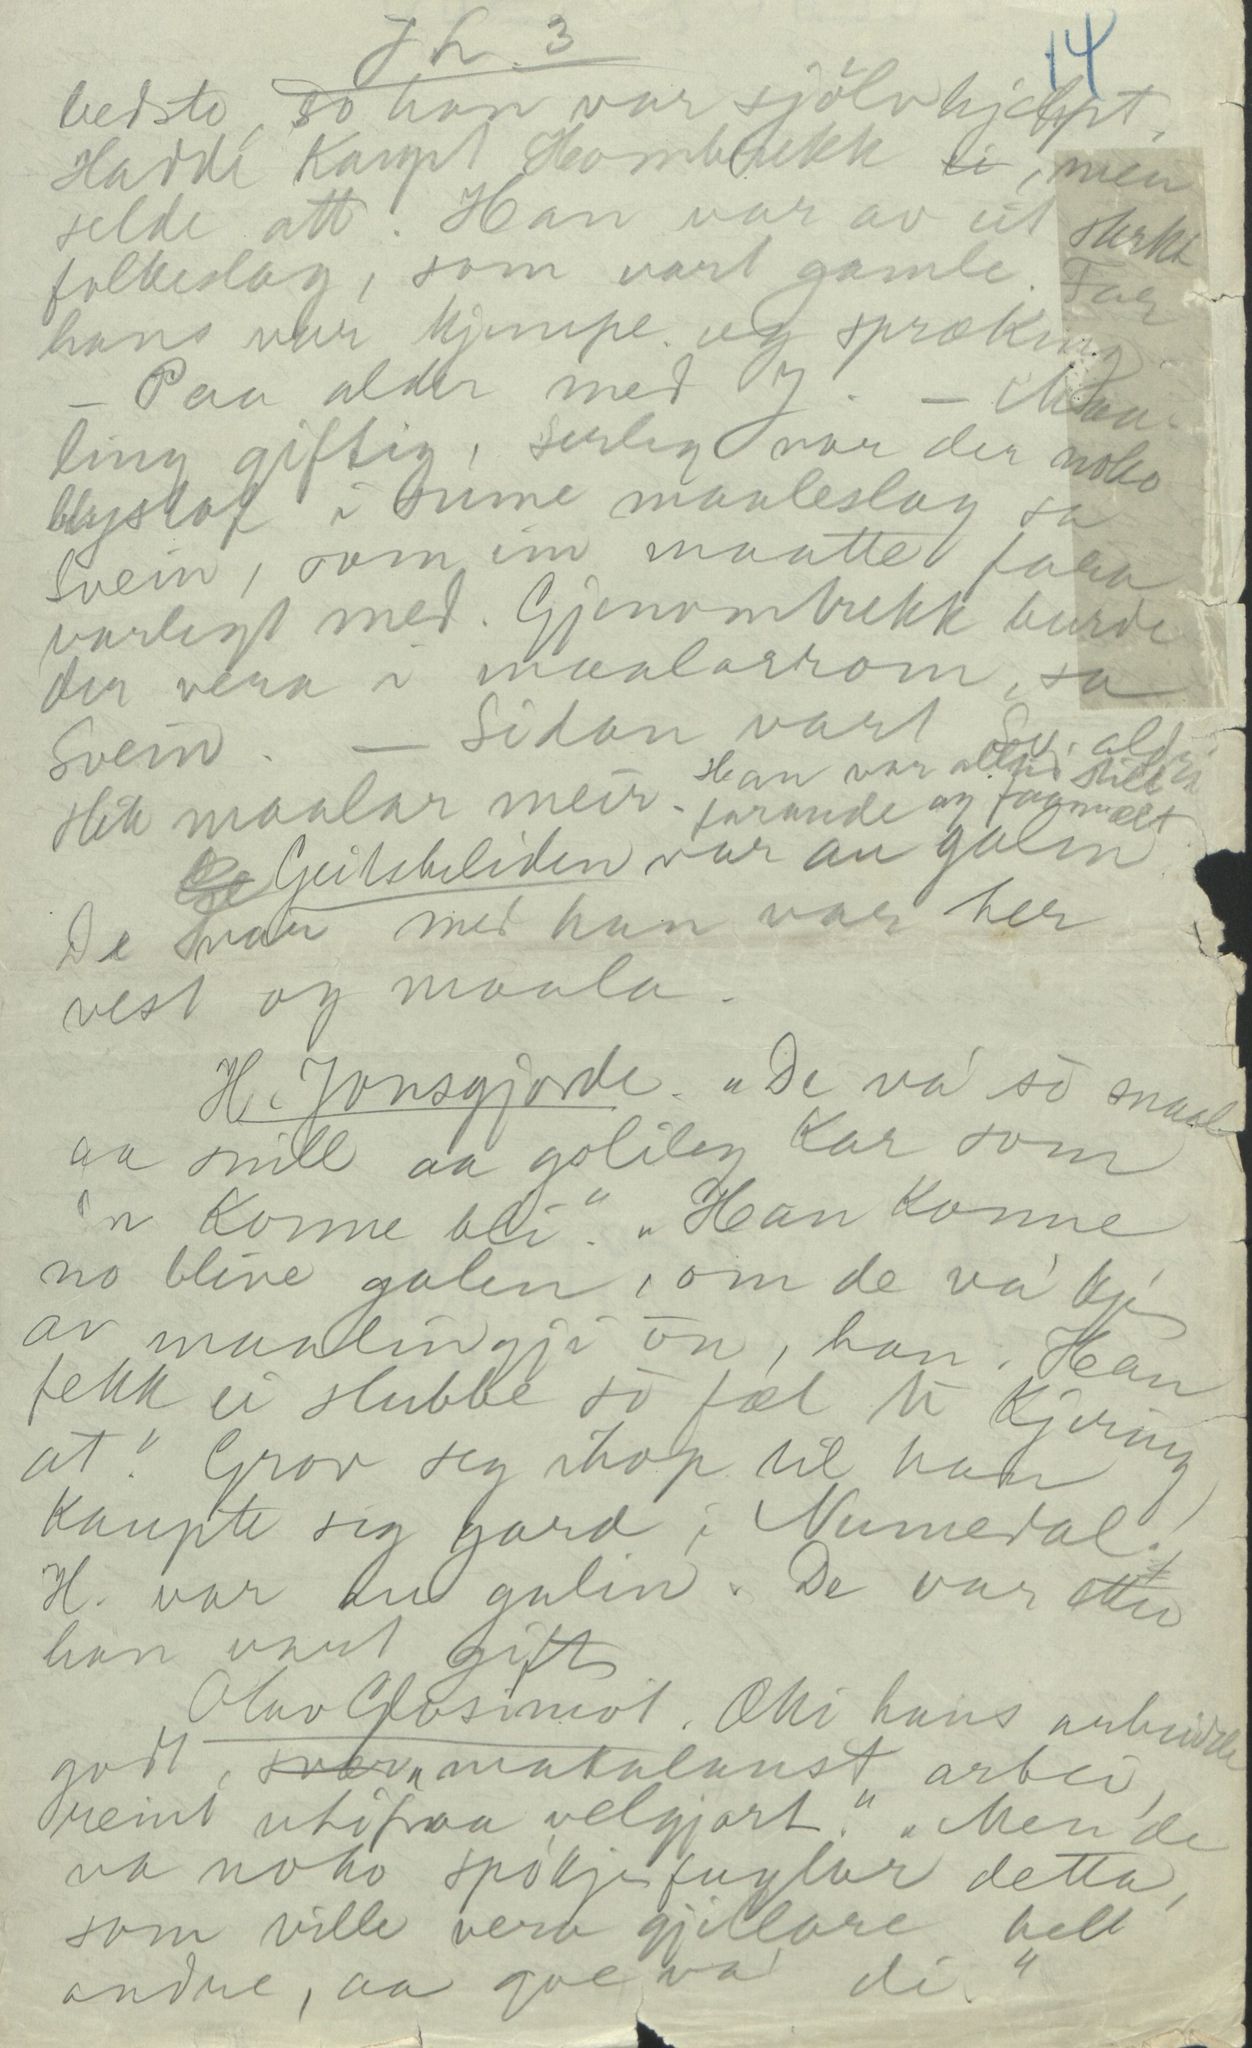 Th. 3
14
bedste, so han var sjölvhjelpt.
Hadde kaupt Hombrekk ei, men
selde att. Han var av eit sterkt
folkeslag, som vart gamle. Far
hans var kjempe og spræking
– Paa alder med J. – Maa-
ling giftig, serleg var der noko
blystof i sume maaleslag sa
Svein, som ein maatte fara
varlegt med. Gjenomtrekk burde
der vera i maalarrom, sa
Svein. – Sidan vart Sv. aldri
slik maalar meir. Han var alltid still
farande og faamælt
Geitebuliden var au galen
De var med han var her
vest og maala.
H. Jonsgjorde. "De va' so snaal
aa snill aa golileg kar som
'n konne bli". "Han konne
no blive galen, om de va' kje
av maalingji ön, han. Han
fekk ei stubbe so fæl te kjering
at". Grov seg ihop til han
kaupte seg gard i Numedal.
H. var au galin. De var etter
han vart gift
Olav Glosimot. Ætti hans arbeidde
godt, svær "makalaust arbei,
reint utifraa velgjort." "Men de
va noko spökjefuglar detta,
som ville vera gjillare hell
andre, aa goe va' di."